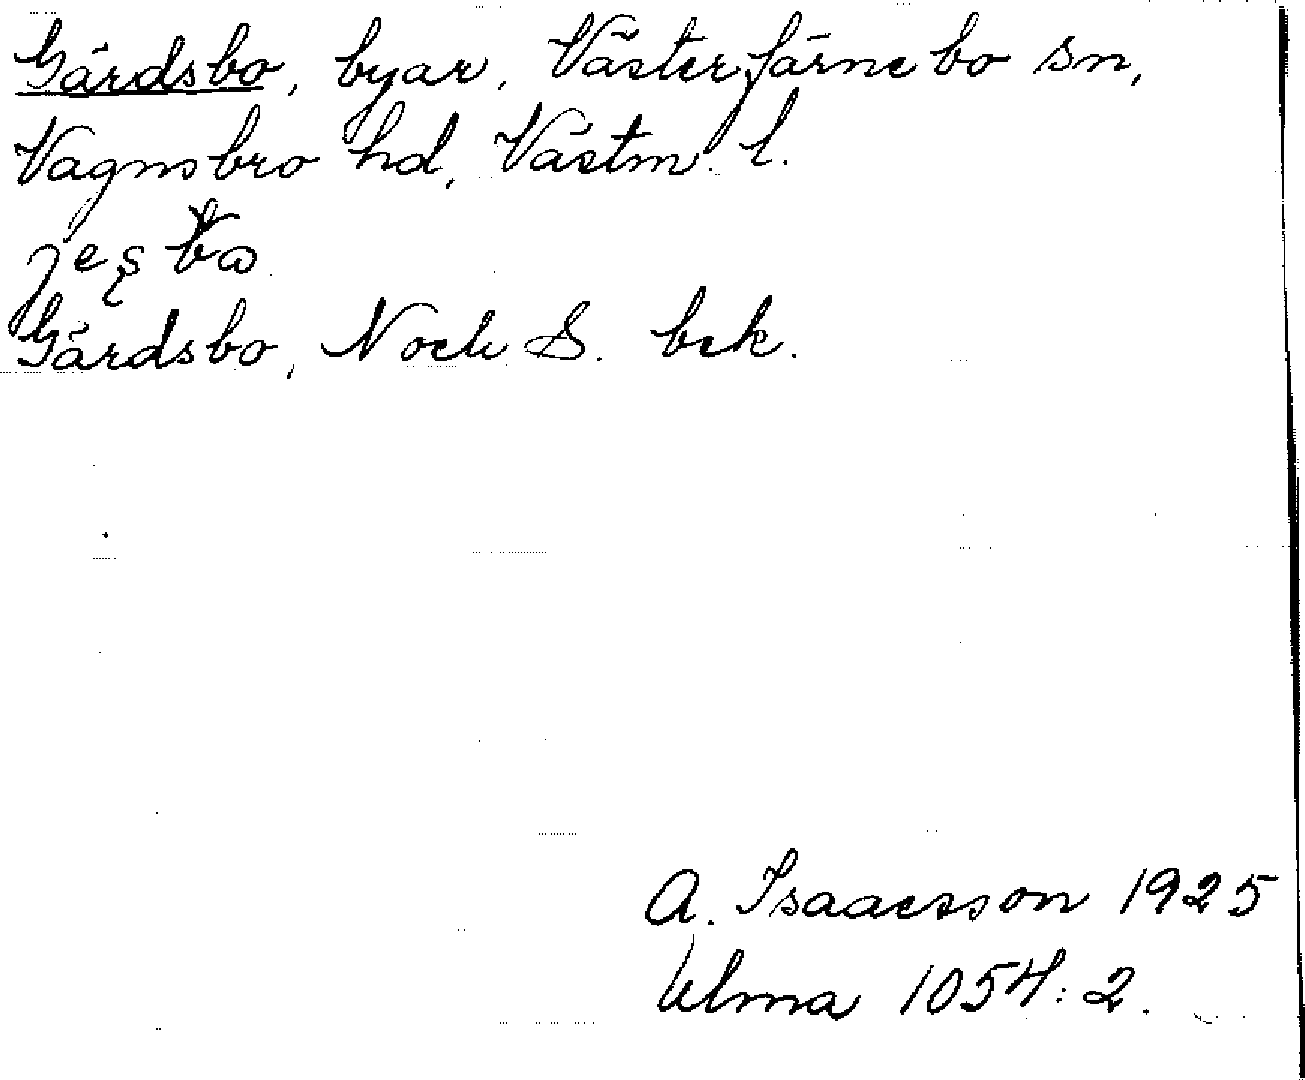 Gärdsbo, byar, Västerfärnebo sn,
Vagnsbro hd, Västm. l.
Gärdsbo, N och S. bek.
A. Isaacsson 1925
Ulma 1054:2.